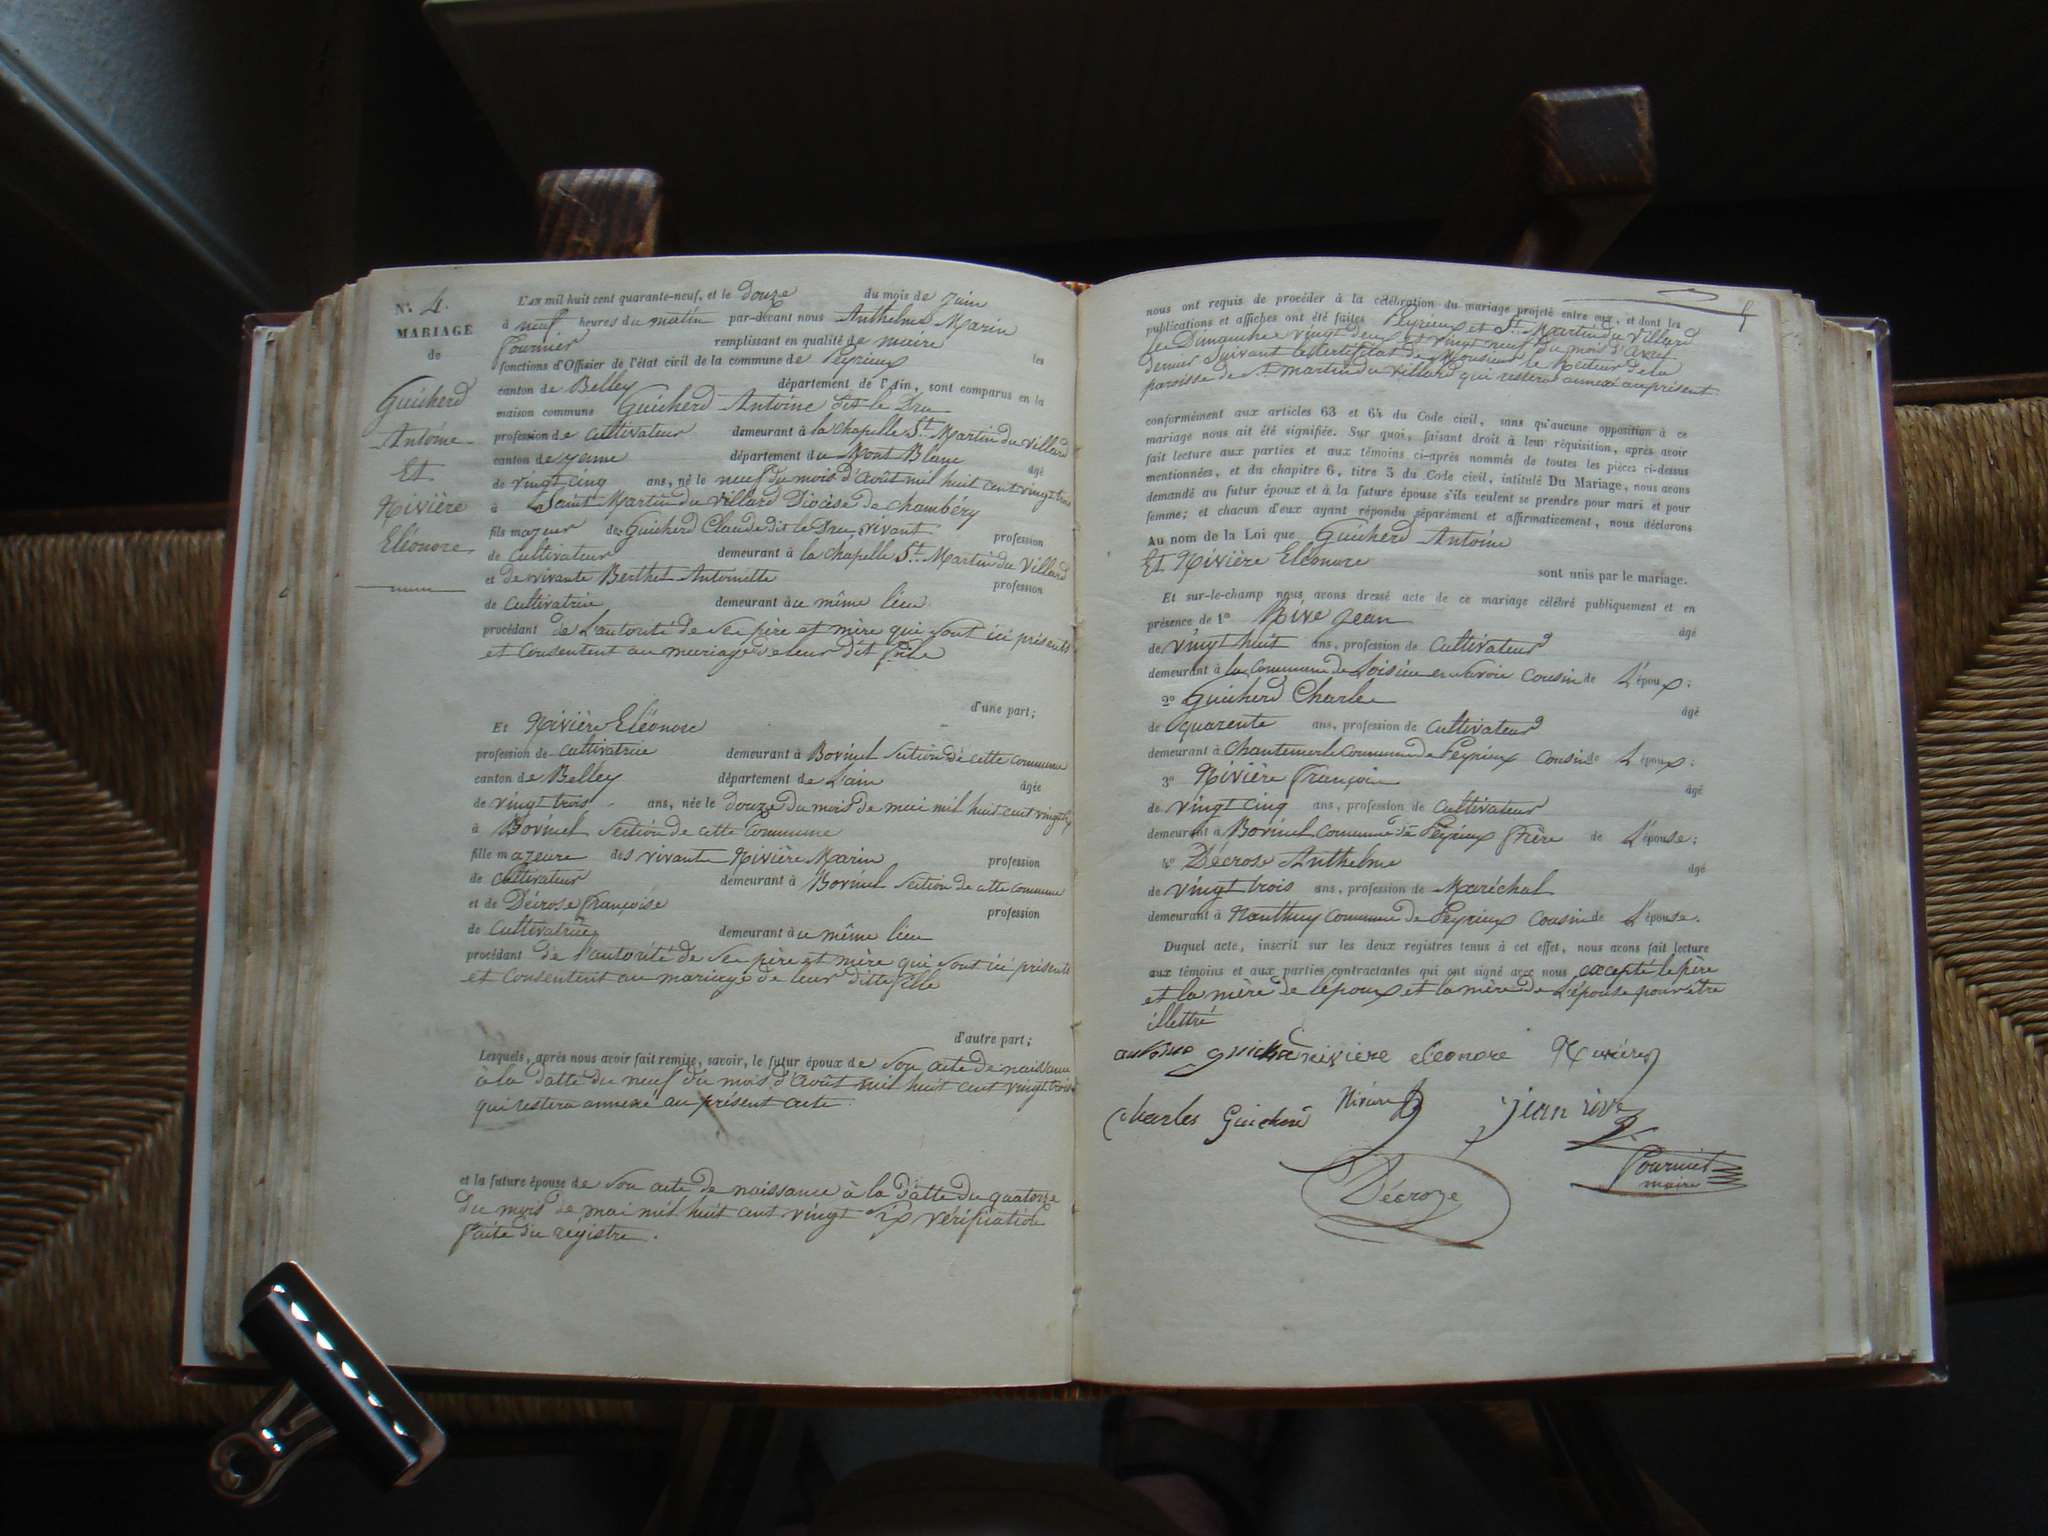 N.° 4.
MARIAGE
de
Guicherd
Antoine
Et
Rivière
Eléonore
L'AN mil huit cent quarante-neuf, et le douze du mois de Juin
à neuf heures du matin par-devant nous Anthelme Marin
Fournier remplissant en qualité de maire les
fonctions d'Officier de l'état civil de la commune de Peyrieux
canton de Belley département de l'Ain, sont comparus en la
maison commune Guicherd Antoine dit le Dru
profession de cultivateur demeurant à la chapelle St. Martin du Villard
canton de yenne département du Mont Blanc âgé
de vingt cinq ans, né le neuf du mois d'Août mil huit cent vingt trois
à Saint Martin du Villard Diocèse de Chambéry
fils majeur de Guicherd Claude dit le Dru, vivant profession
de cultivateur demeurant à la chapelle St. Martin du Villard
et de vivante Berthet Antoinette profession
de cultivatrice demeurant au même lieu
procédant de l'autorité de ses père et mère qui sont ici présents
et consentent au mariage de leur dit fils
d'une part;
Et Rivière Eléonore
profession de cultivatrice demeurant à Borinel section de cette commune
canton de Belley département de L'ain âgée
de vingt trois ans, née le douze du mois de mai mil huit cent vingt six
à Borinel section de cette Commune
fille majeure des vivants Rivière Marin profession
de cultivateur demeurant à Borinel section de cette commune
et de Décrose Françoise profession
de Cultivatrice demeurant au même lieu
procédant de l'autorité de ses père et mère qui sont ici présents
et consentent au mariage de leur ditte fille
d'autre part;
Lesquels, après nous avoir fait remise, savoir, le futur époux de son acte de naissance
à la datte du neuf du mois d'Août mil huit cent vingt trois
qui restera annexé au présent acte.
et la future épouse de son acte de naissance à la datte du quatorze
du mois de mai mil huit cent vingt six vérification
faite du régistre.
nous ont requis de procéder à la célébration du mariage projeté entre eux, et dont les
publications et affiches ont été faites Peyrieux et St. Martin du Villard
le Dimanche vingt deux et vingt neuf du mois d'Avril
dernier suivant le certificat de Monsieur le Recteur de la
paroisse de St martin du Villard qui restera annexé au présent.
conformément aux articles 63 et 64 du Code civil, sans qu'aucune opposition à ce
mariage nous ait été signifiée. Sur quoi, faisant droit à leur réquisition, après avoir
fait lecture aux parties et aux témoins ci-après nommés de toutes les pièces ci-dessus
mentionnées, et du chapitre 6, titre 5 du Code civil, intitulé Du Mariage, nous avons
demandé au futur époux et à la future épouse s'ils veulent se prendre pour mari et pour
femme; et chacun d'eux ayant répondu séparément et affirmativement, nous déclarons
Au nom de la Loi que Guicherd Antoine
Et Rivière Eléonore sont unis par le mariage.
Et sur-le-champ nous avons dressé acte de ce mariage célébré publiquement et en
présence de 1° Rive Jean âgé
de vingt huit ans, profession de cultivateur
demeurant à la Commune de Loisieu en Savoie cousin de L'époux;
2° Guicherd Charles âgé
de quarente ans, profession de cultivateur
demeurant à Chantemerle commune de Peyrieux cousin de L'époux;
3° Rivière François âgé
de vingt cinq ans, profession de cultivateur
demeurant à Borinel commune de Peyrieux frère de L'épouse;
4° Décrose Anthelme âgé
de vingt trois ans, profession de Maréchal
demeurant à Nanthuy commune de Peyrieux cousin de L'épouse.
Duquel acte, inscrit sur les deux registres tenus à cet effet, nous avons fait lecture
aux témoins et aux parties contractantes qui ont signé avec nous excepté le père
et la mère de l'époux et la mère de L'épouse pour être
illettré
rivière eleonore
charles Guicherd Rivière jean rive
Décroze
Fournier
maire